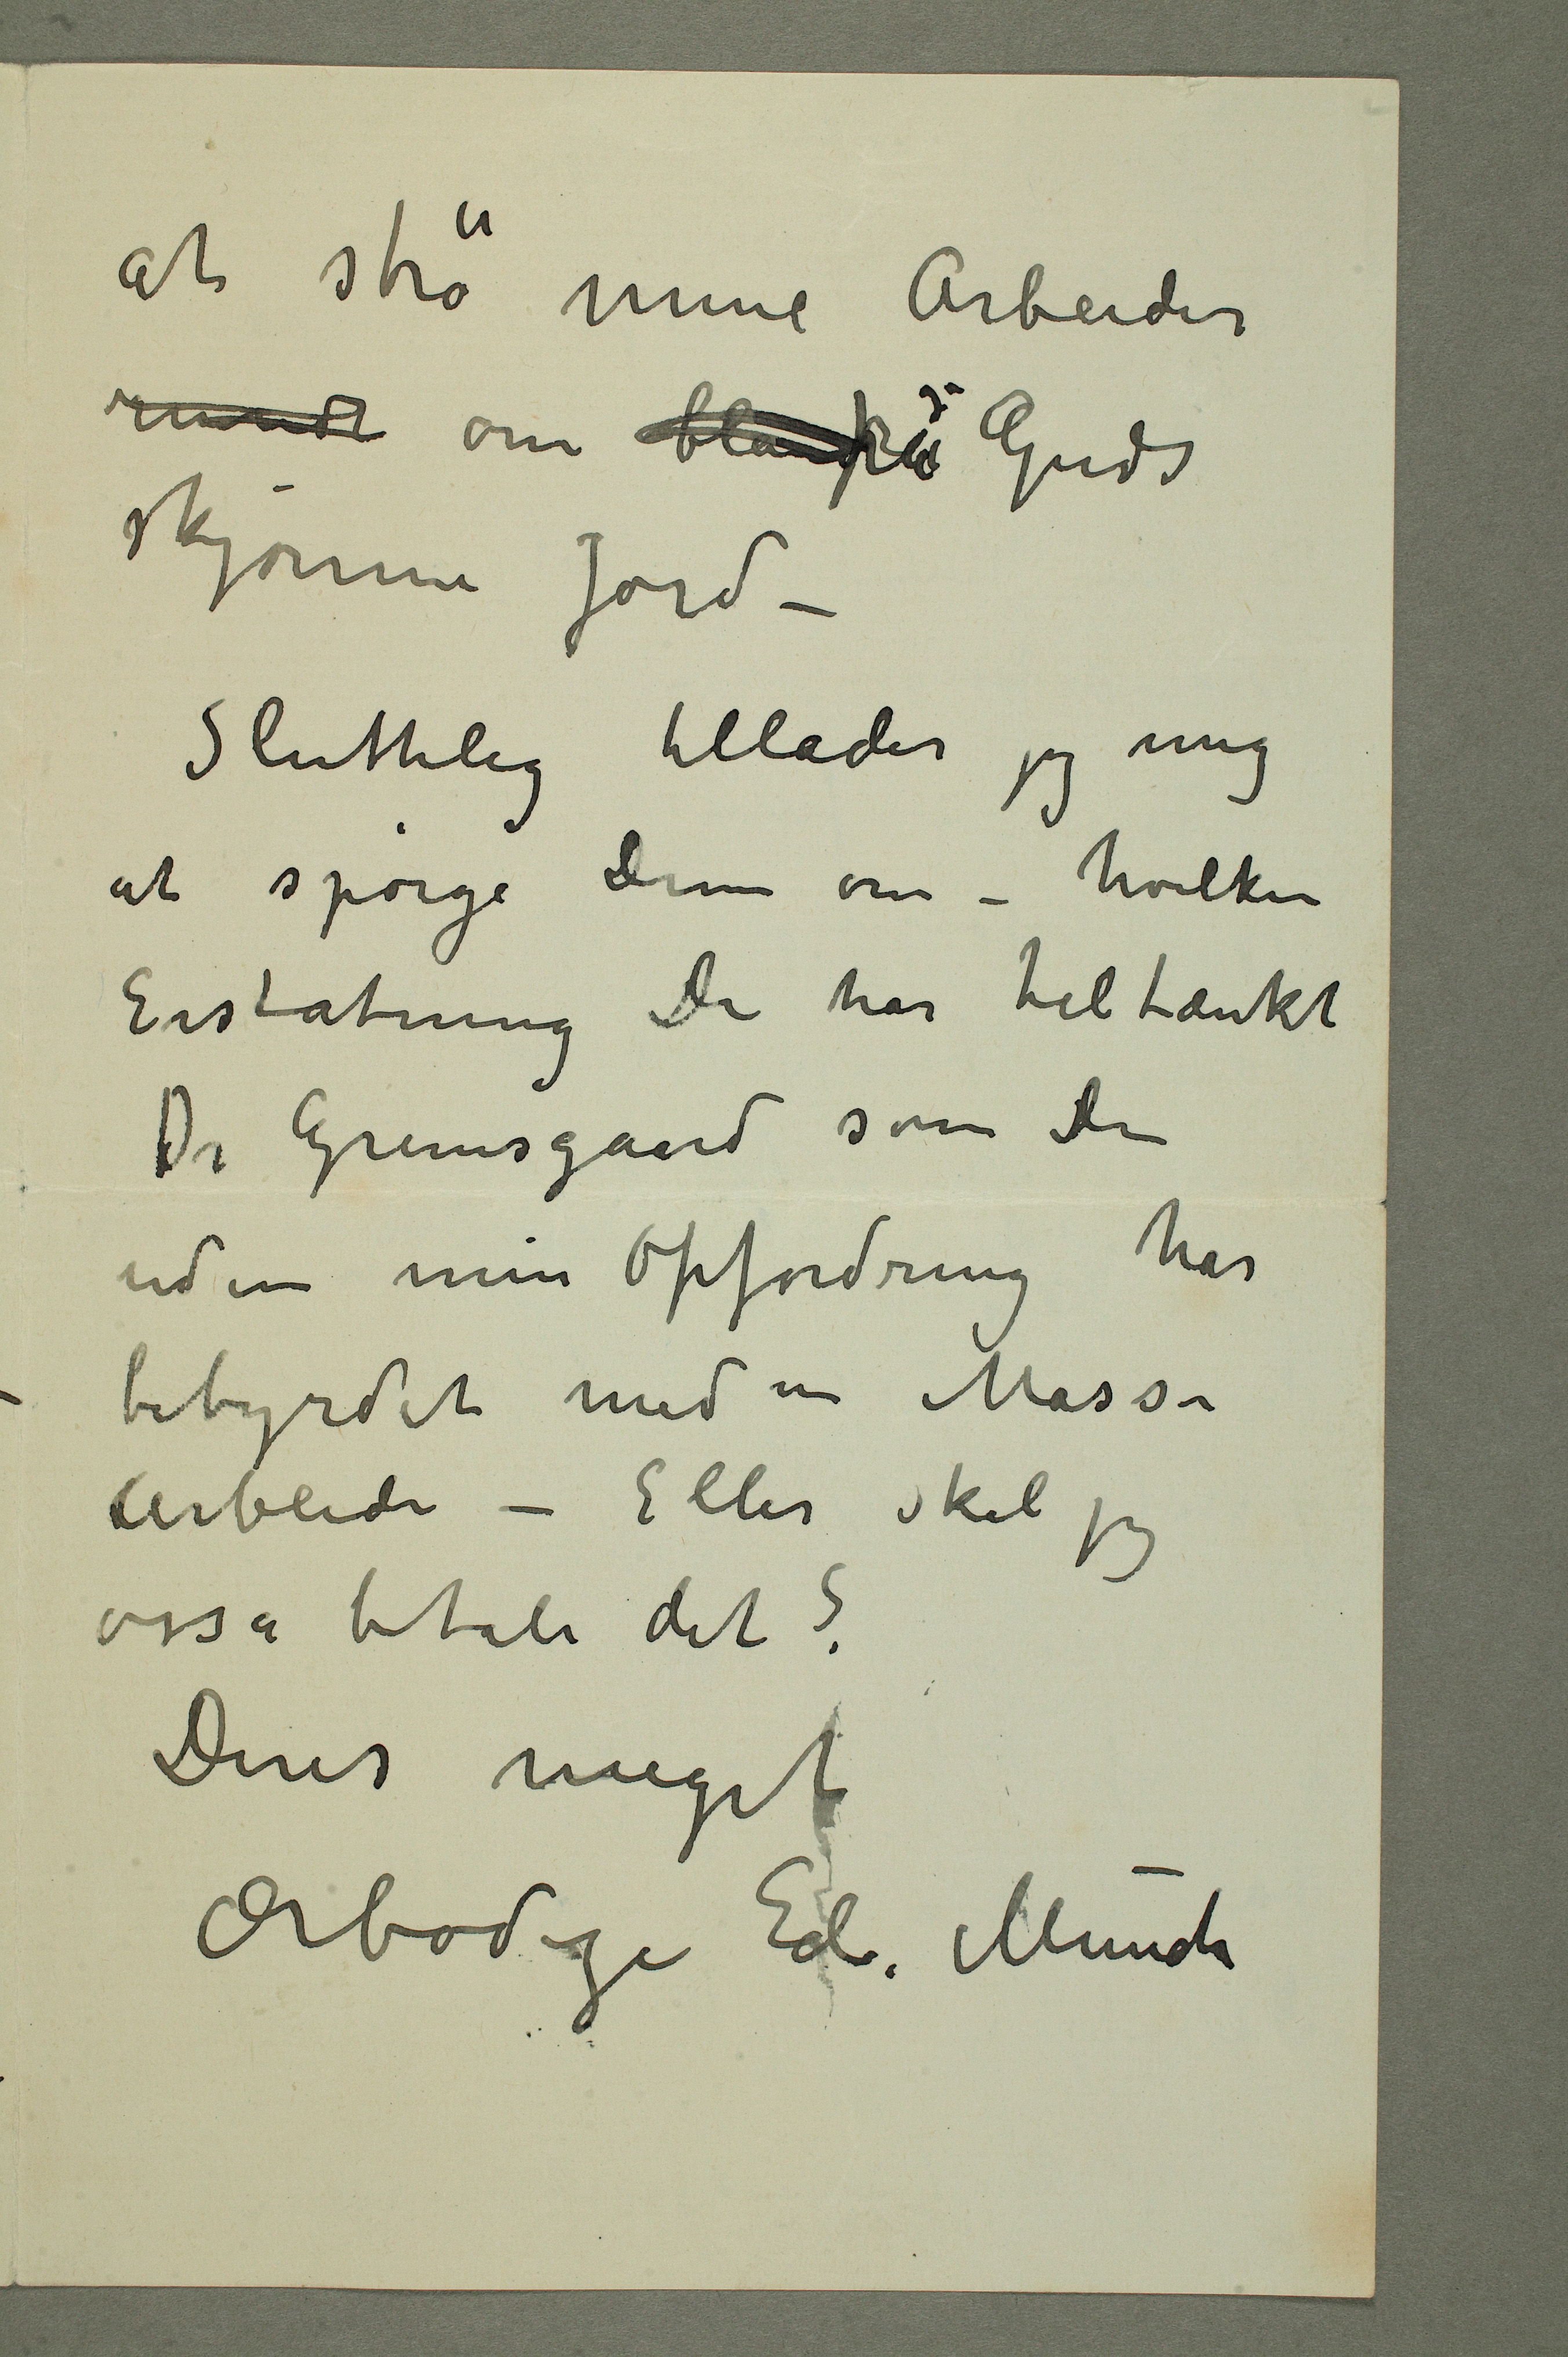 at strö mine Arbeider
rundt om på Guds
skjønne Jord –
Sluttelig tillader jeg mig
at spørge Dem om – hvilken
Erstatning De har tiltænkt
Dr Grimsgaard som De
uden min Opfordring har
bebyrdet med en Masse
Arbeide – Eller skal jeg
osså betale det?
Deres meget
ærbødige Edv. Munch